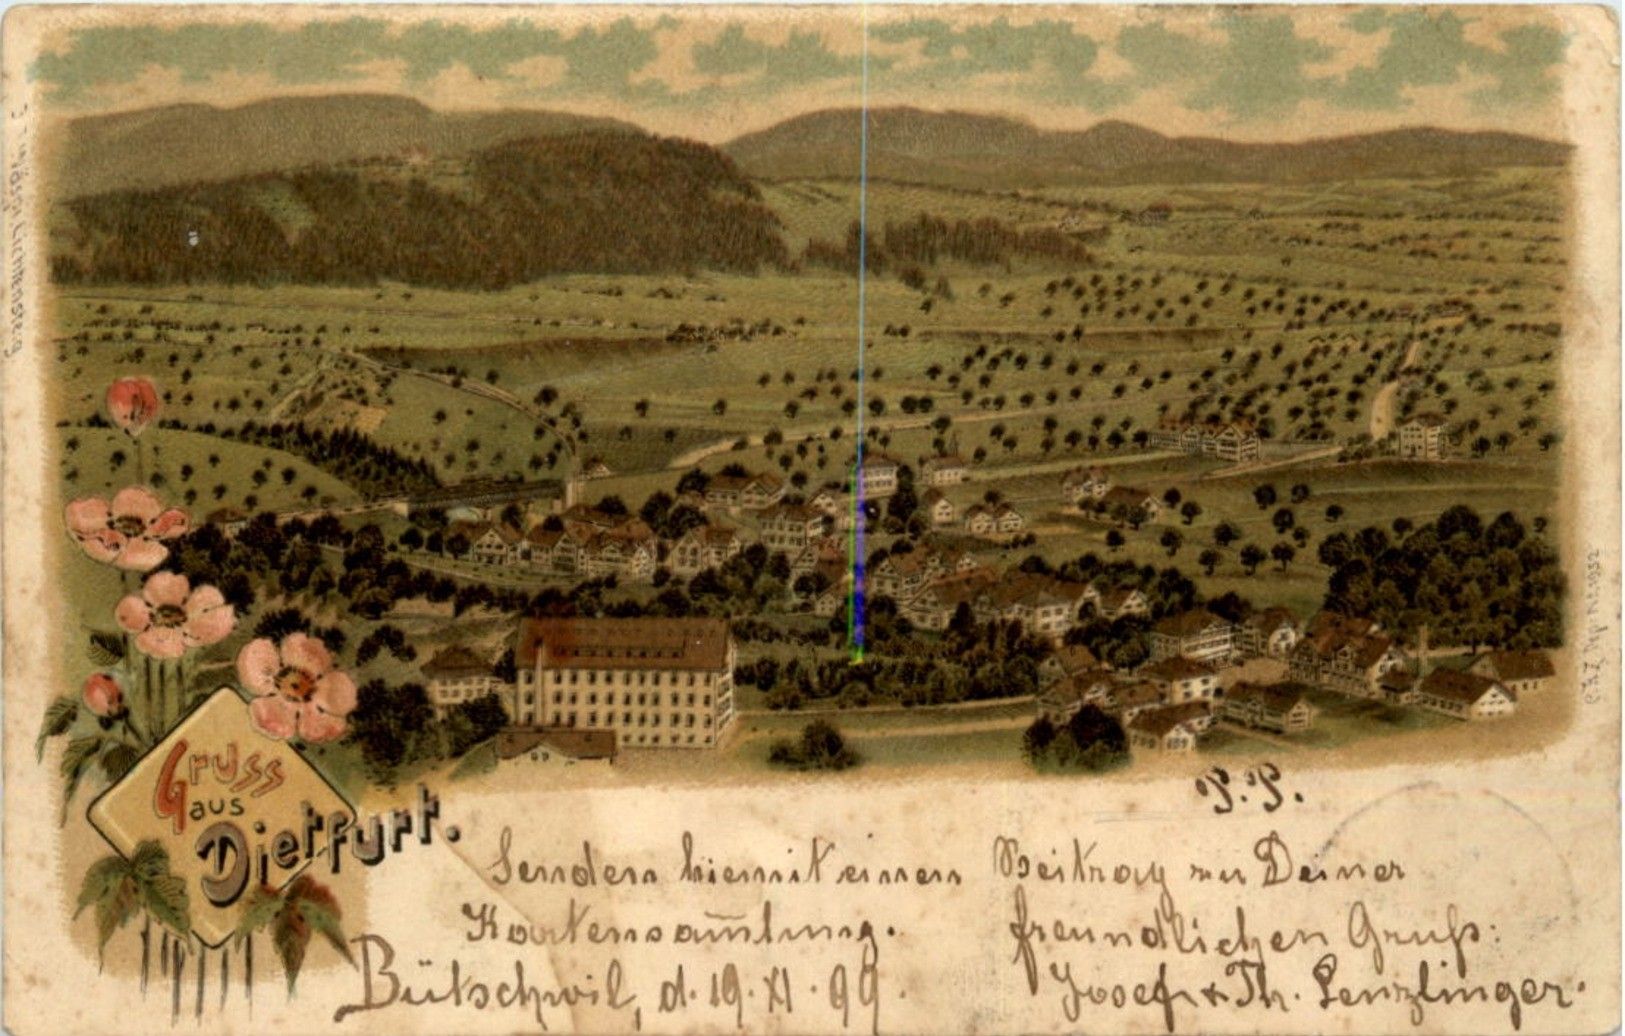 Gruss
aus
Dietfurt.
P.P.
Senden hiemit einen Beitrag zu Deiner
Kartensam̄lung.
freundlichen Gruß:
Bütschwil, d. 19. XI. 99.
Josef & Th. Lenzlinger.
Lichtensteig